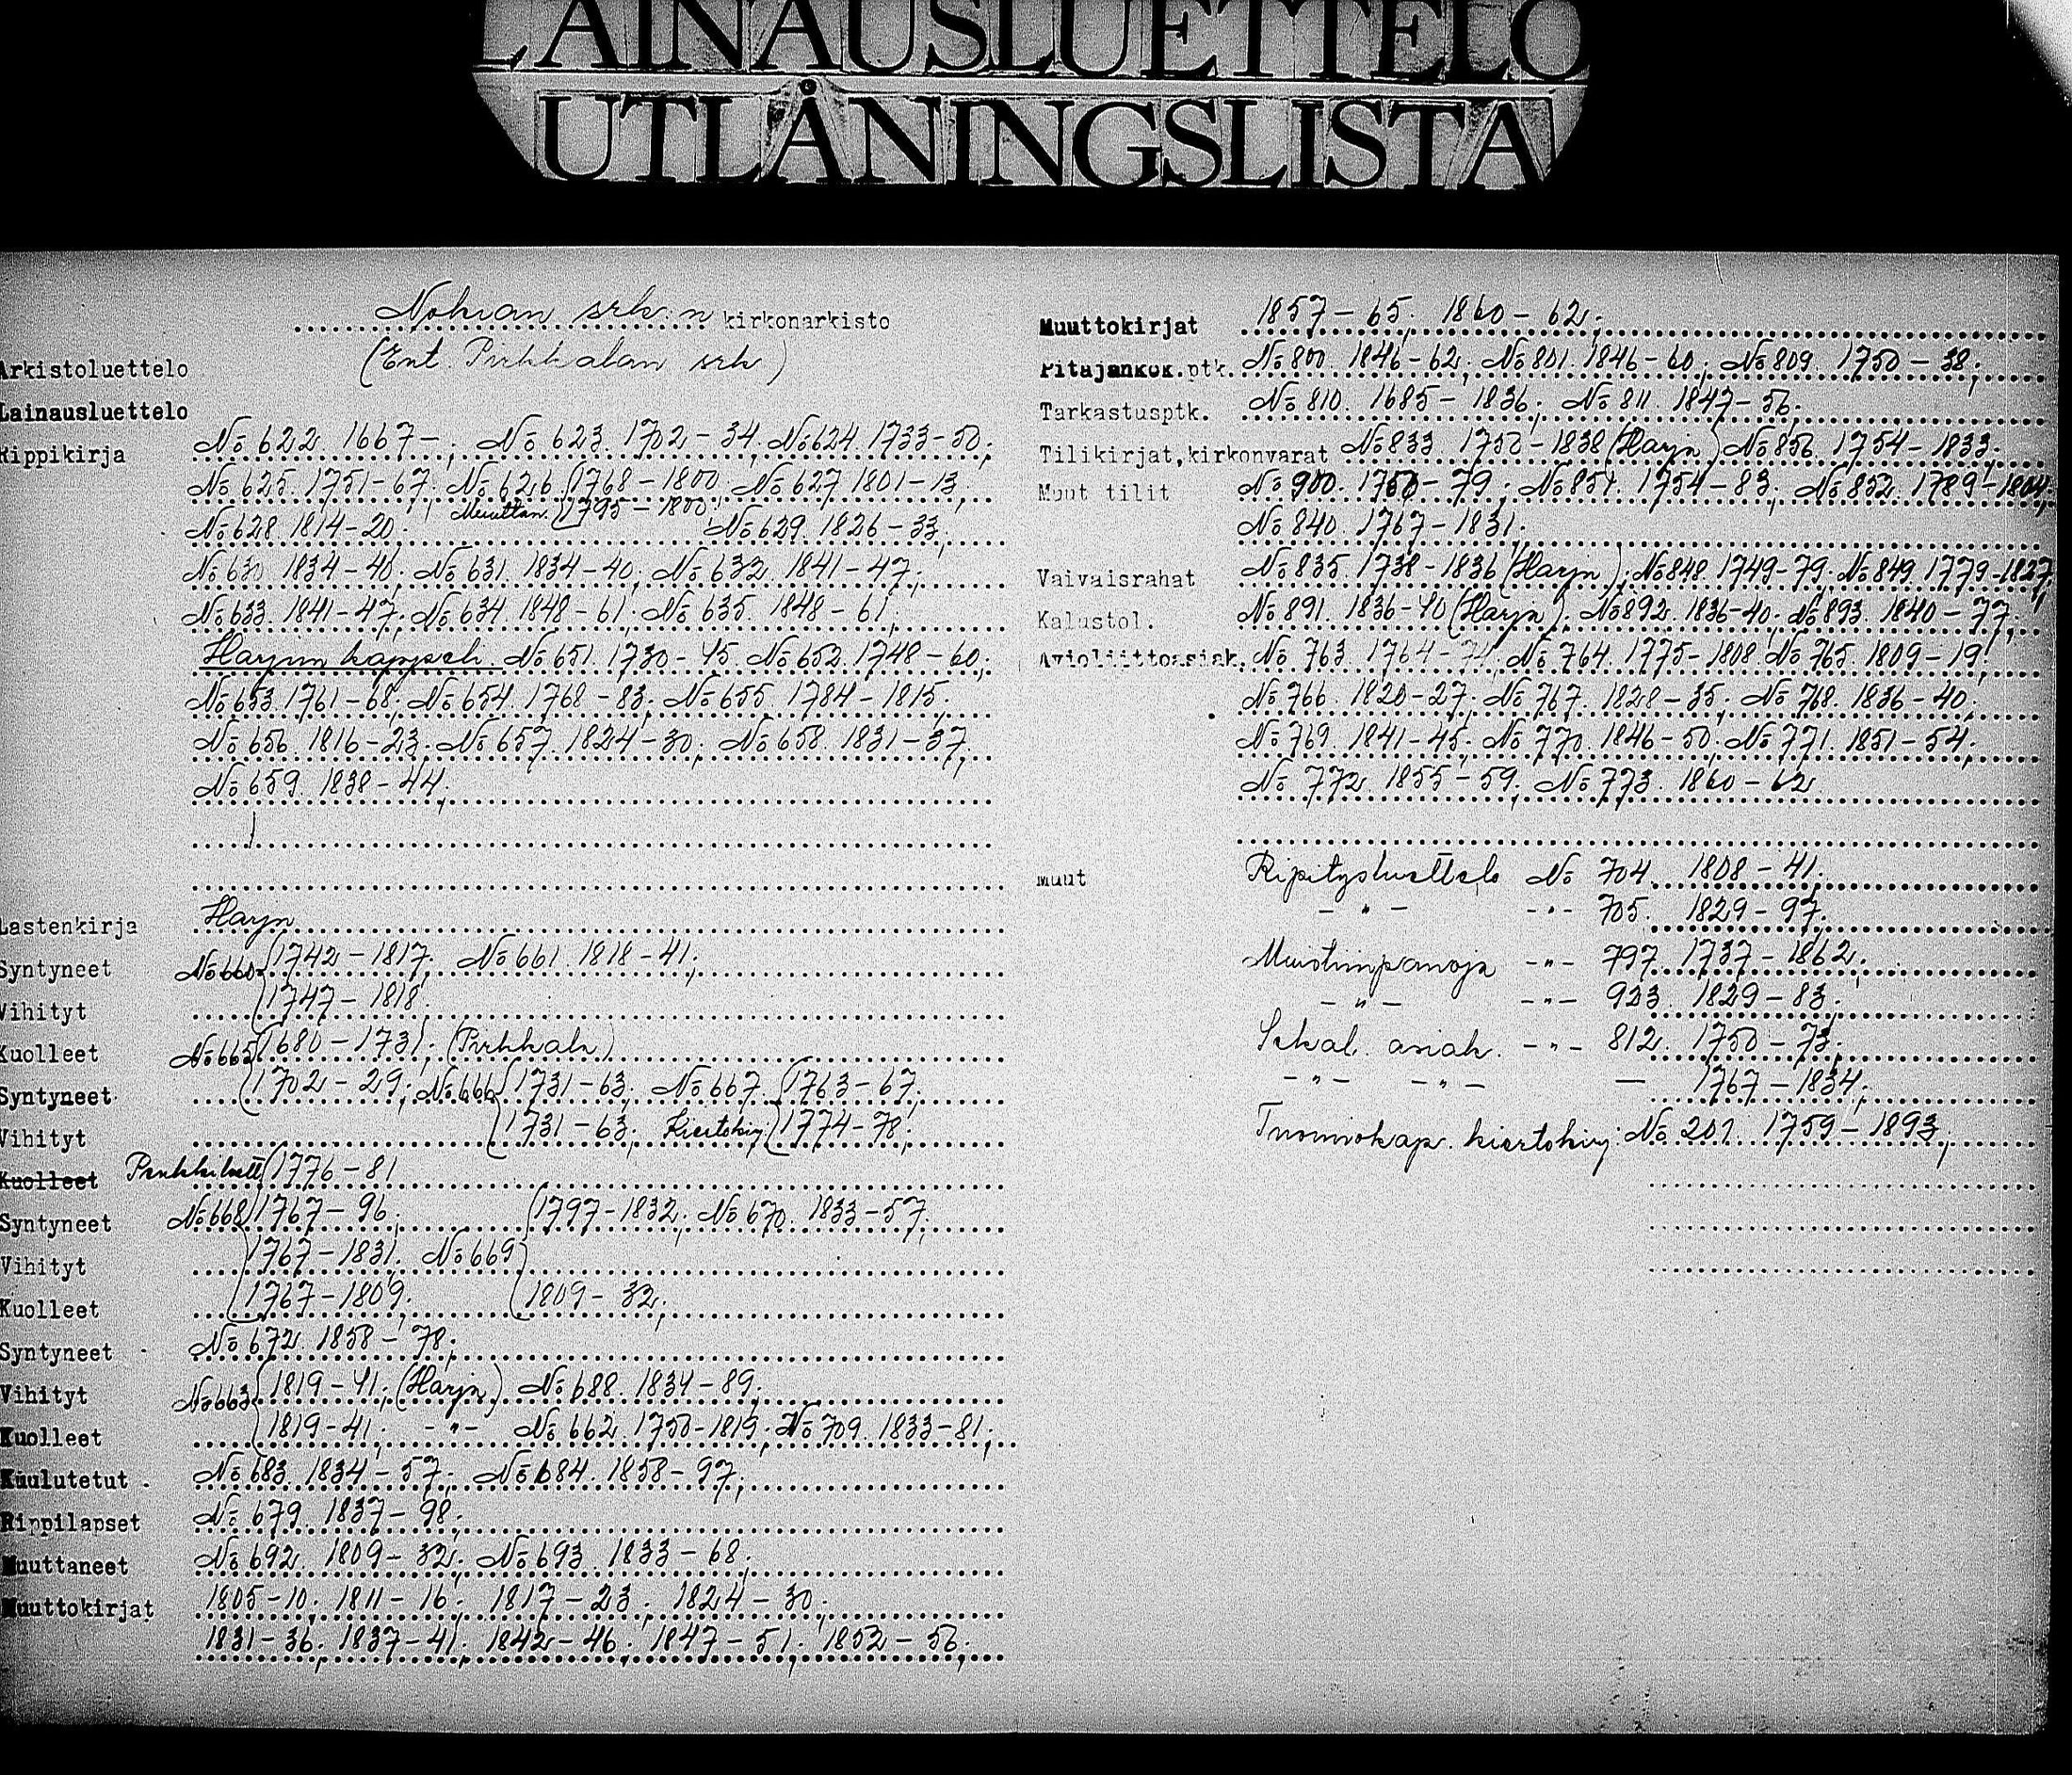 LAINAUSLUETTELO
UTLÅNINGSLISTA
Nokian srk:n kirkonarkisto
Arkistoluettelo (Ent. Pirkkalan srk)
Lainausluettelo
Rippikirja No 622. 1667- ; No 623. 1702-34; No 624. 1733-50;
No 625. 1751-67; No 626 1768-1800; No 627 1801-13;
Muuttan. 1795-1800;
No 628. 1814-20. No 629. 1826-33;
No 630 1834-40; No 631 1834-40; No 632. 1841-47;
No 633. 1841-47; No 634. 1848-61; No 635. 1848-61;
Harjun kappeli. No 651. 1730-45. No 652. 1748-60;
No 653. 1761-68; No 654. 1768-83; No 655. 1784-1815;
No 656. 1816-23; No 657. 1824-30; No 658. 1831-37;
No 659. 1838-44;
Lastenkirja Harju
Syntyneet No 660 1742-1817; No 661. 1818-41;
Vihityt 1747-1818.
Kuolleet No 665 1680-1731. (Pirkkala)
Syntyneet 1702-29; No 666 1731-63; No 667. 1763-67;
Vihityt 1731-63; Kiertokirj. 1774-78;
Kuolleet Penkkiluett. 1776-81
Syntyneet No 668 1767-96; 1797-1832; No 670. 1833-57;
Vihityt 1767-1831. No 669
Kuolleet 1767-1809; 1809-32;
Syntyneet No 672. 1858-78;
Vihityt No 663 1819-41; (Harju) No 688. 1834-89;
Kuolleet 1819-41; -"- No 662. 1750-1819; No 709. 1833-81;
Kuulutetut No 683. 1834-57; No 684. 1858-97;
Rippilapset No 679. 1837-98;
Muuttaneet No 692. 1809-32; No 693. 1833-68;
Muuttokirjat 1805-10; 1811-16; 1817-23; 1824-30;
1831-36; 1837-41; 1842-46; 1847-51; 1852-56;
Muuttokirjat 1857-65; 1860-62;
Pitäjänkok.ptk. No 800. 1846-62; No 801. 1846-60; No 809. 1750-38;
Tarkastusptk. No 810. 1685-1836; No 811. 1847-56;
Tilikirjat, kirkonvarat No 833 1750-1838 (Harju) No 856. 1754-1833;
Muut tilit No 900. 1750-79; No 851. 1754-83; No 852. 1789-1804;
No 840. 1767-1831;
Vaivaisrahat No 835. 1738-1836 (Harju); No 848. 1749-79; No 849. 1779-1827;
Kalustol. No 891. 1836-40 (Harju); No 892. 1836-40; No 893. 1840-77;
Avioliittoasiak. No 763. 1764-74; No 764. 1775-1808. No 765. 1809-19;
No 766. 1820-27; No 767. 1828-35; No 768. 1836-40;
No 769. 1841-45; No 770. 1846-50; No 771. 1851-54;
No 772. 1855-59; No 773. 1860-62
Muut Ripitysluettelo No 704. 1808-41.
-"- -"- 705. 1829-97.
Muistiinpanoja -"- 797. 1737-1862;
-"- -"- 923. 1829-83.
Sekal. asiak. -"- 812. 1750-73;
-"- -"- — 1767-1834;
Tuomiokap. kiertokirj: No 201. 1759-1893;